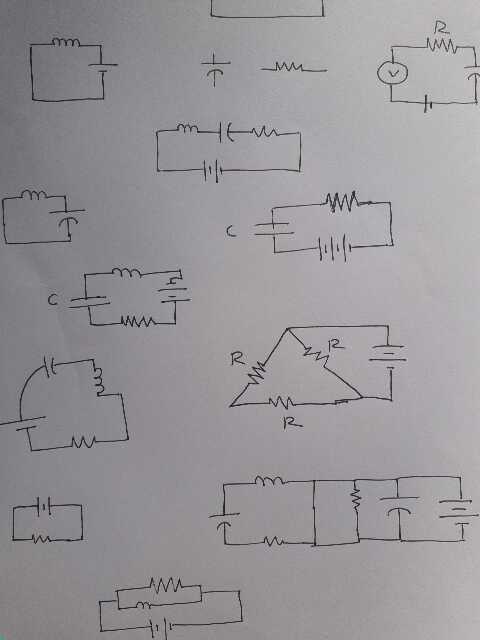 R
V
C
C
R
R
R